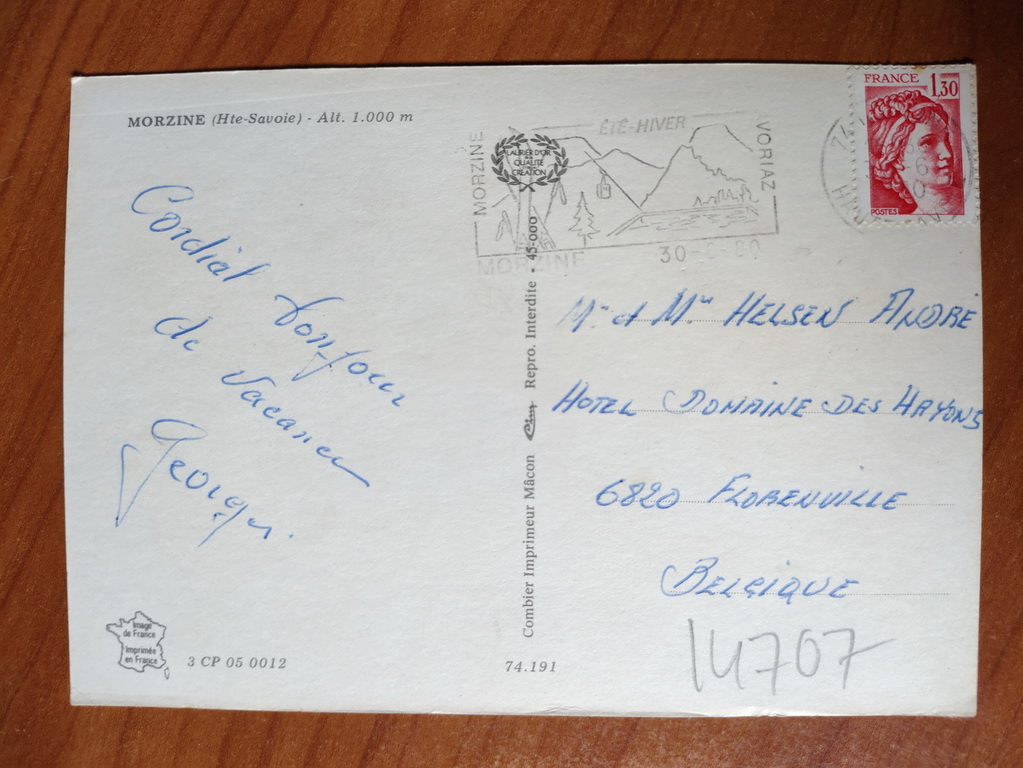 MORZINE (Hte-Savoie) - Alt. 1.000 m
Cordial bonjour
de vacances
Georges.
Image
de France
Imprimée
en France
3 CP 05 0012
74.191
Combier Imprimeur Mâcon Cim Repro. Interdite - 45-000
MORZINE
ÉTÉ-HIVER
VORIAZ
LAURIER D'OR
QUALITÉ
CREATION
MORZINE
30-6-80
FRANCE 1,30
POSTES
Mr et Me HELSEN ANDRÉ
HOTEL DOMAINE DES HAYONS
6820 FLORENVILLE
BELGIQUE
14707